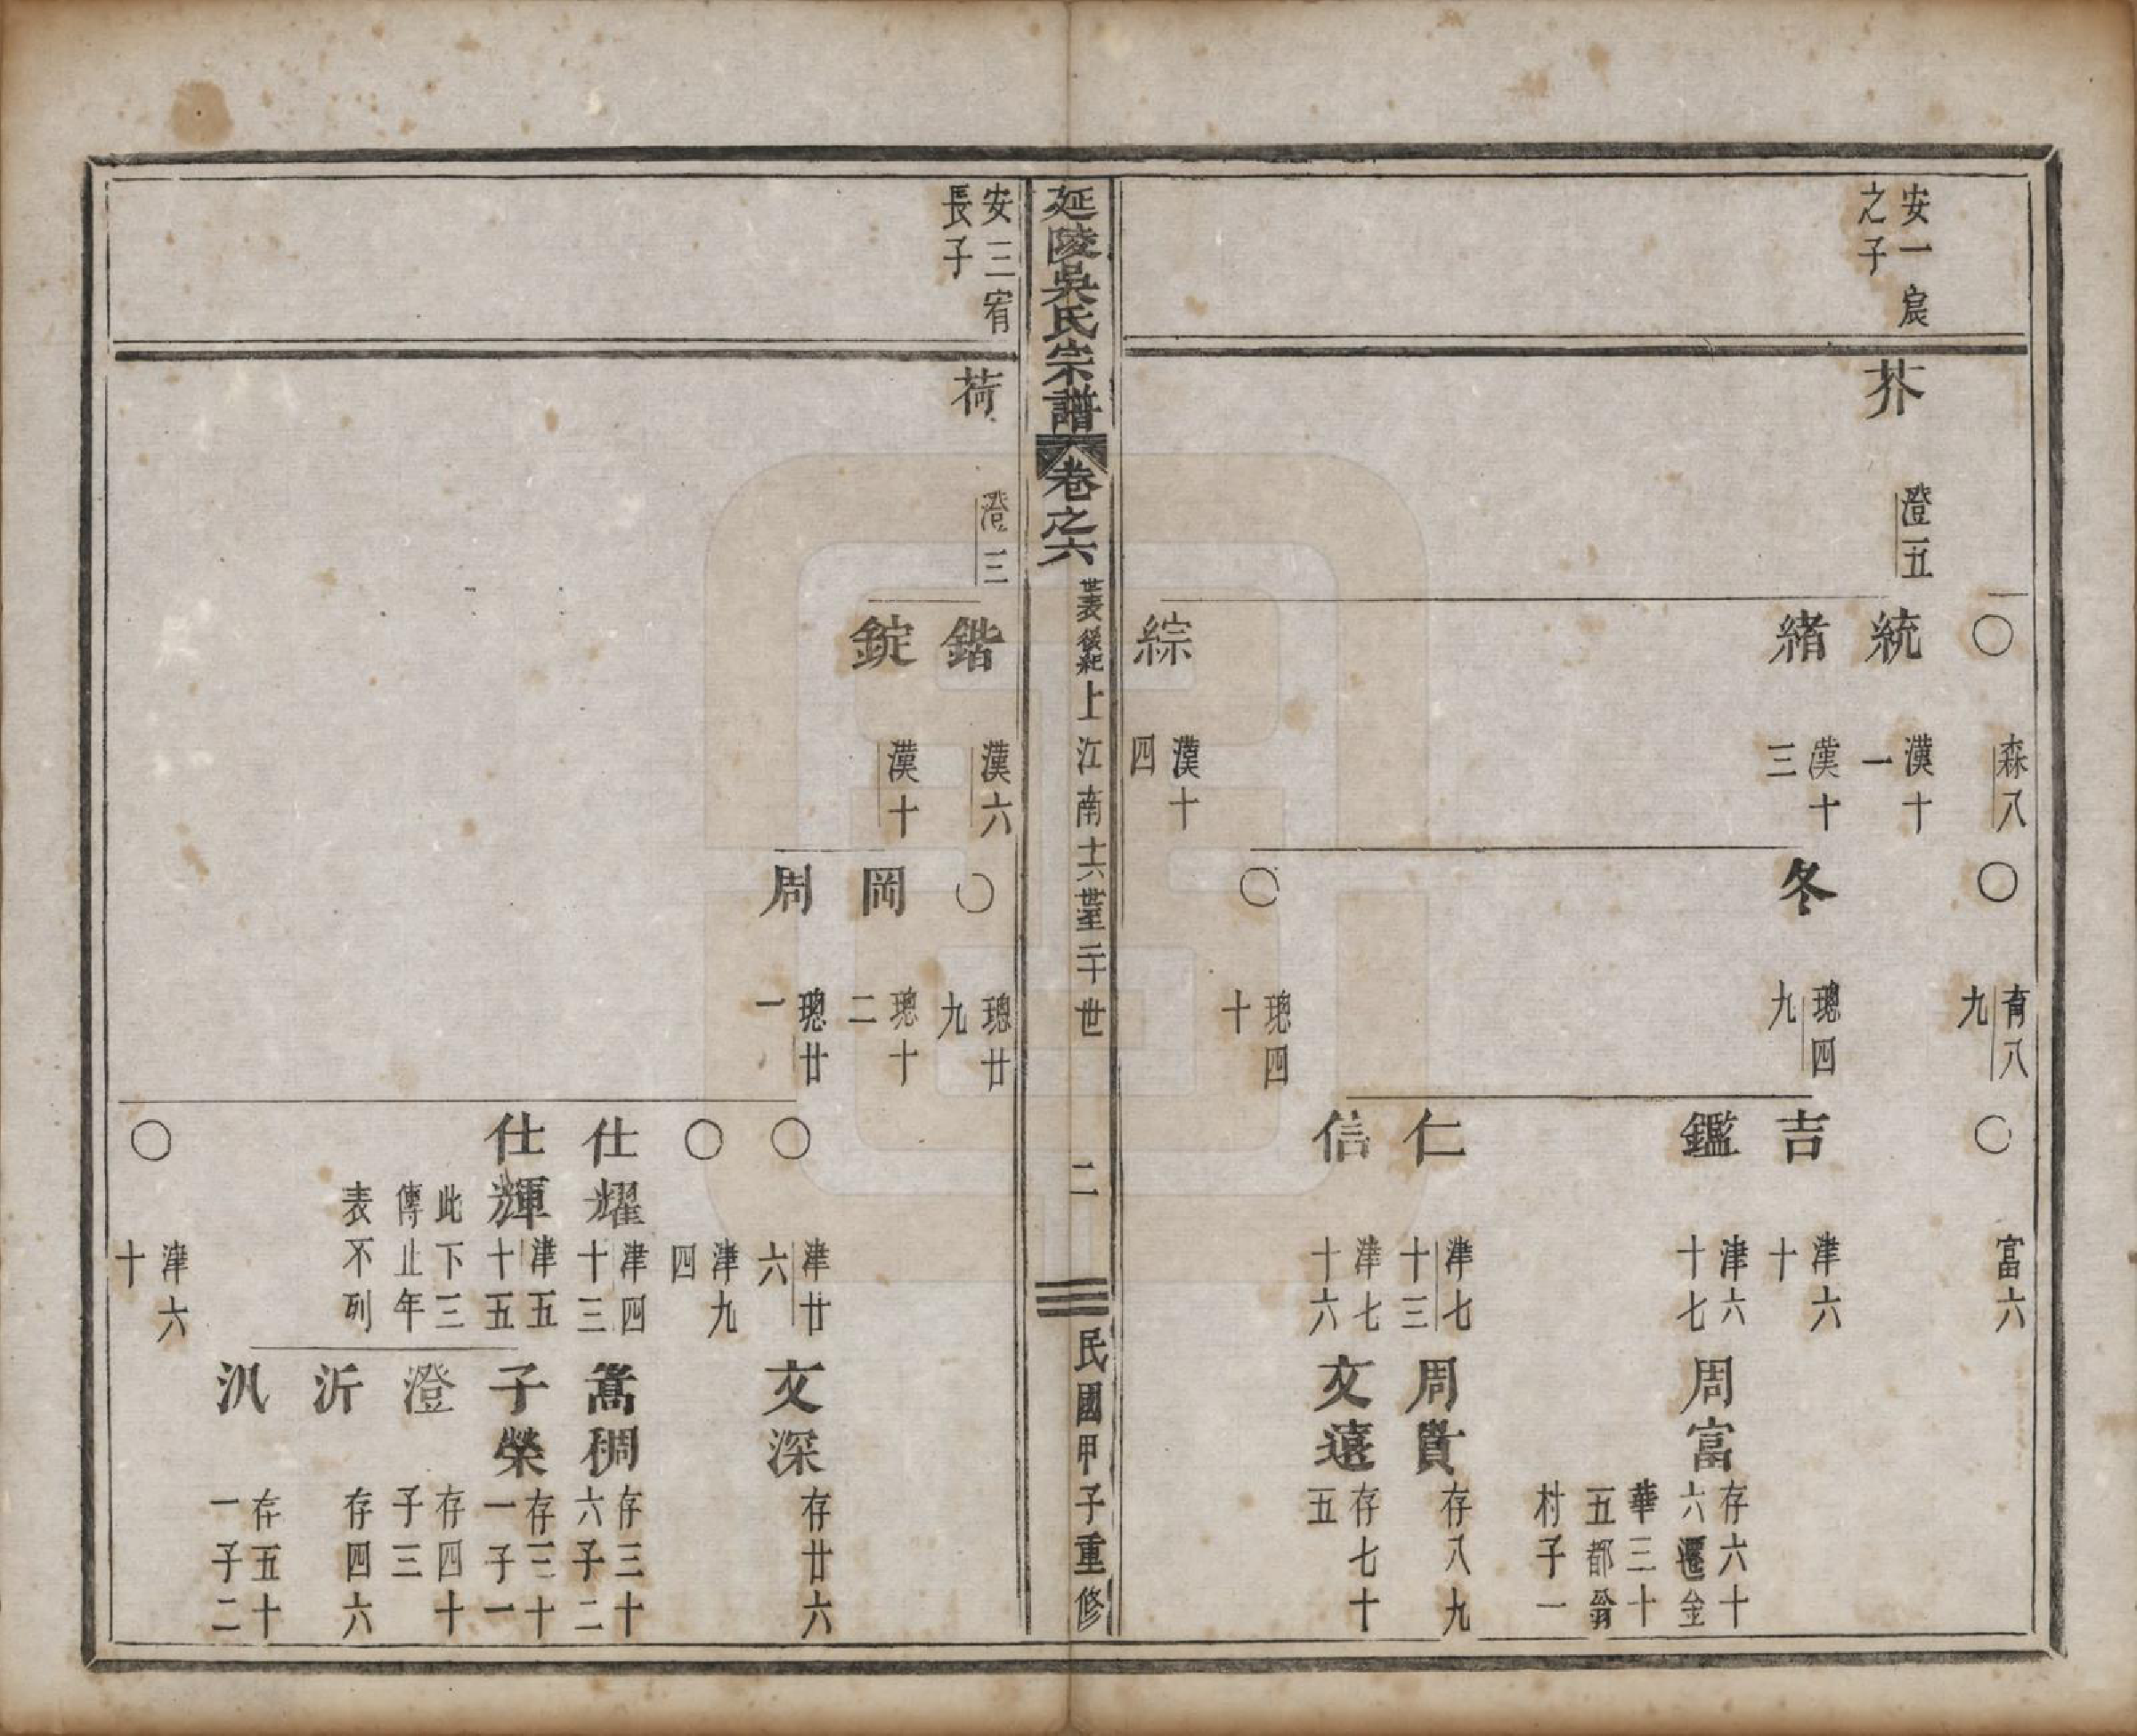 安一宸
之子
芥
澄五
〇
森八
統
漢十
一
緒
漢十
三
綜
漢十
四
〇
育八
九
冬
璁四
九
〇
璁四
十
〇
富六
吉
津六
十
鑑
津六
十七
仁
津七
十三
信
津七
十六
周富
存六十
六遷金
華三十
五都翁
村子一
周貴
存八九
文遠
存七十
五
延陵吳氏宗譜
卷之六
世表後紀上江南十六世至二十世
二
民國甲子重修
安三宥
長子
荷
澄三
鍇
漢六
錠
漢十
〇
璁廿
九
岡
璁十
二
周
璁廿
一
〇
津廿
六
〇
津九
四
仕耀
津四
十三
仕輝
津五
十五
此下三
傳止年
表不列
〇
津六
十
文深
存廿六
嵩稠
存三十
六子二
子榮
存三十
一子一
澄
存四十
子三
沂
存四六
汎
存五十
一子二